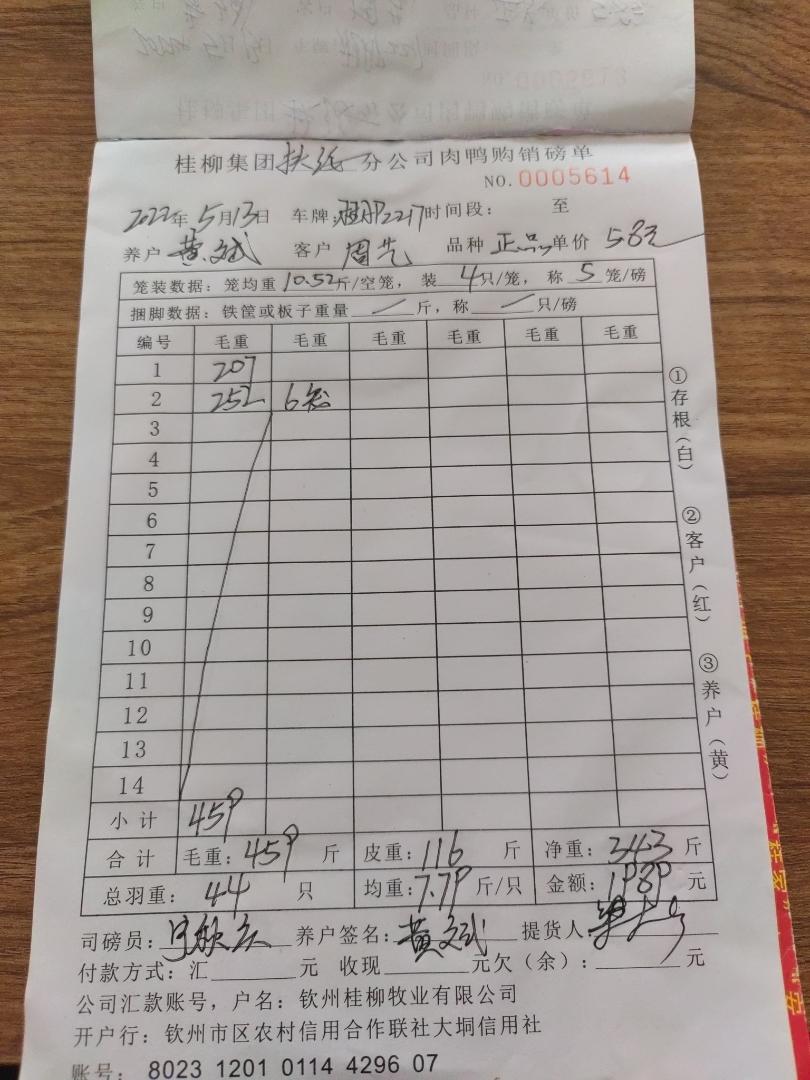 桂柳集团扶绥分公司肉鸭购销磅单
NO.0005614
2022年5月13日 车牌:2217时间段: 至
养户 黄文斌 客户 周先 品种 正品 单价 58元
笼装数据: 笼均重 10.52斤/空笼, 装 4只/笼, 称 5笼/磅
捆脚数据: 铁筐或板子重量 / 斤, 称 / 只/磅
编号 毛重 毛重 毛重 毛重 毛重 毛重
1 207
2 252 6笼
3
4
5
6
7
8
9
10
11
12
13
14
小计 459
合计 毛重: 459 斤 皮重: 116 斤 净重: 343 斤
总羽重: 44 只 均重: 7.79 斤/只 金额: 1989 元
司磅员: 养户签名: 黄文斌 提货人
付款方式: 汇 元 收现 元欠(余): 元
公司汇款账号, 户名: 钦州桂柳牧业有限公司
开户行: 钦州市区农村信用合作联社大垌信用社
账号: 8023 1201 0114 4296 07
①存根(白)
②客户(红)
③养户(黄)